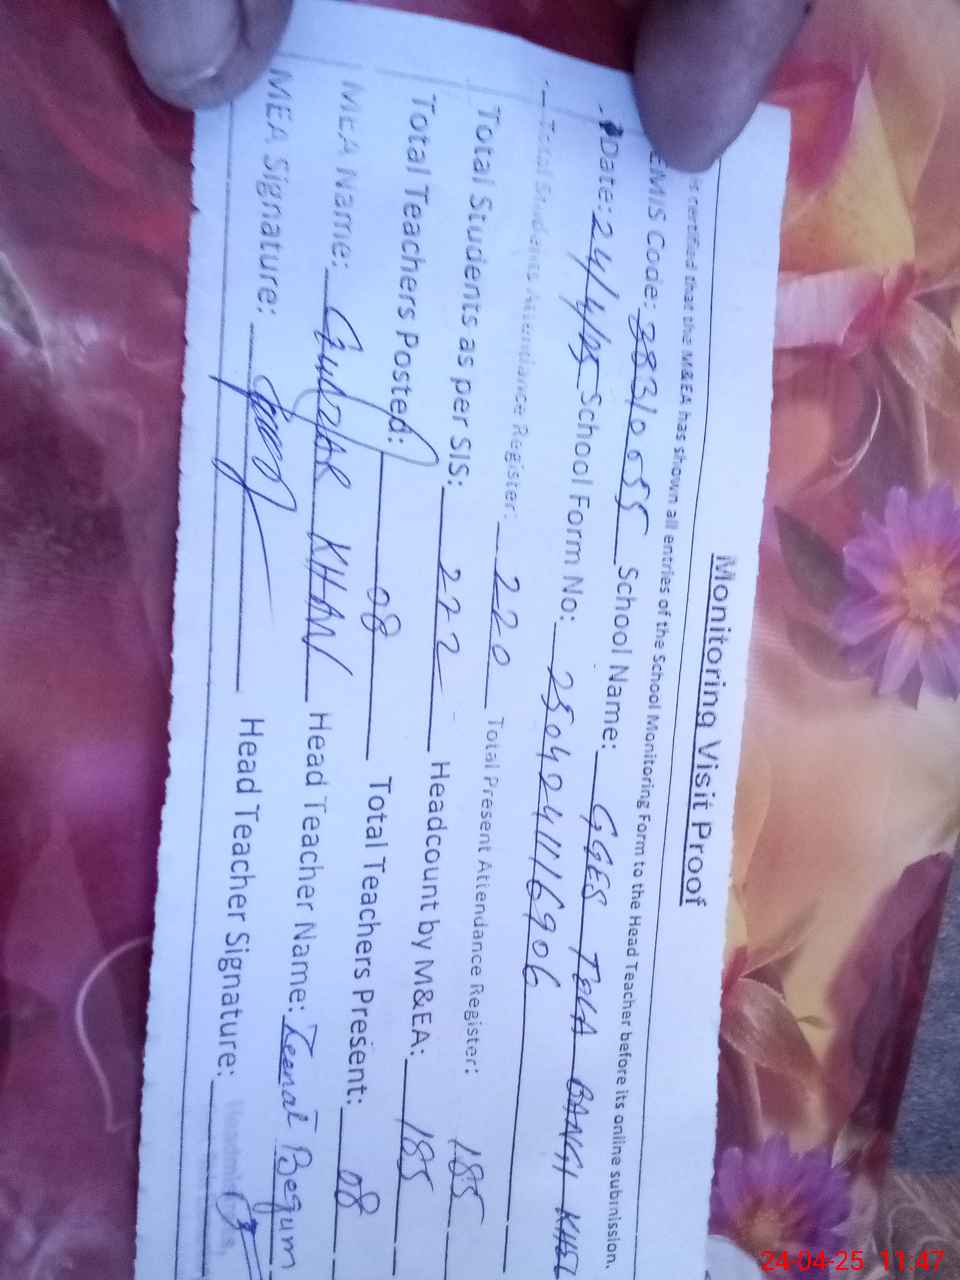 Monitoring Visit Proof
is certified that the M&EA has shown all entries of the School Monitoring Form to the Head Teacher before its online submission.
EMIS Code: 38310055 School Name: GGES TOLA BANGI KHEL
Date: 24/4/25 School Form No: 2504241116906
Total Students Attendance Register: 220 Total Present Attendance Register: 185
Total Students as per SIS: 222 Headcount by M&EA: 185
Total Teachers Posted: 08 Total Teachers Present: 08
MEA Name: Gulzar KHAN Head Teacher Name: Begum
MEA Signature: Head Teacher Signature:
24-04-25 11:47